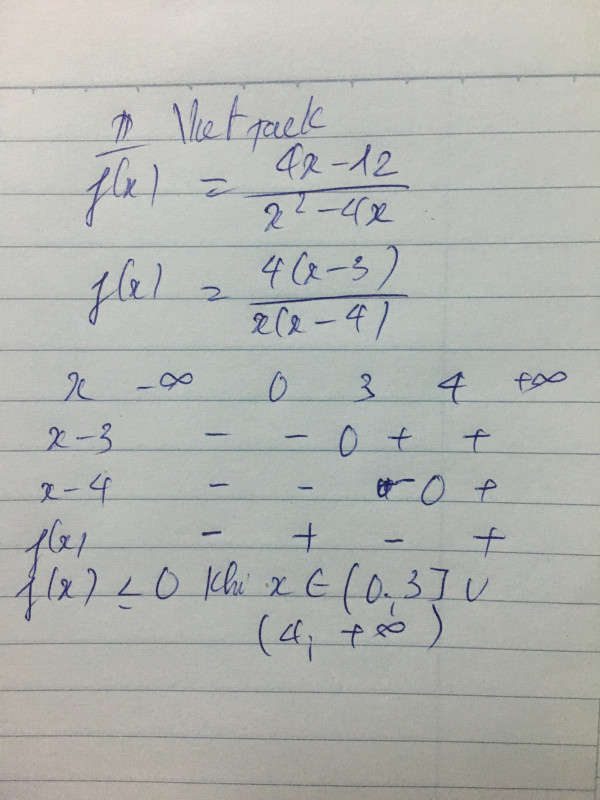 f(x) = (4x-12)/(x²-4x)
f(x) = 4(x-3)/(x(x-4))
x -∞ 0 3 4 +∞
x-3 - - 0 + +
x-4 - - - 0 +
f(x) - + - +
f(x) ≤ 0 khi x ∈ (0; 3] ∪
(4, +∞)